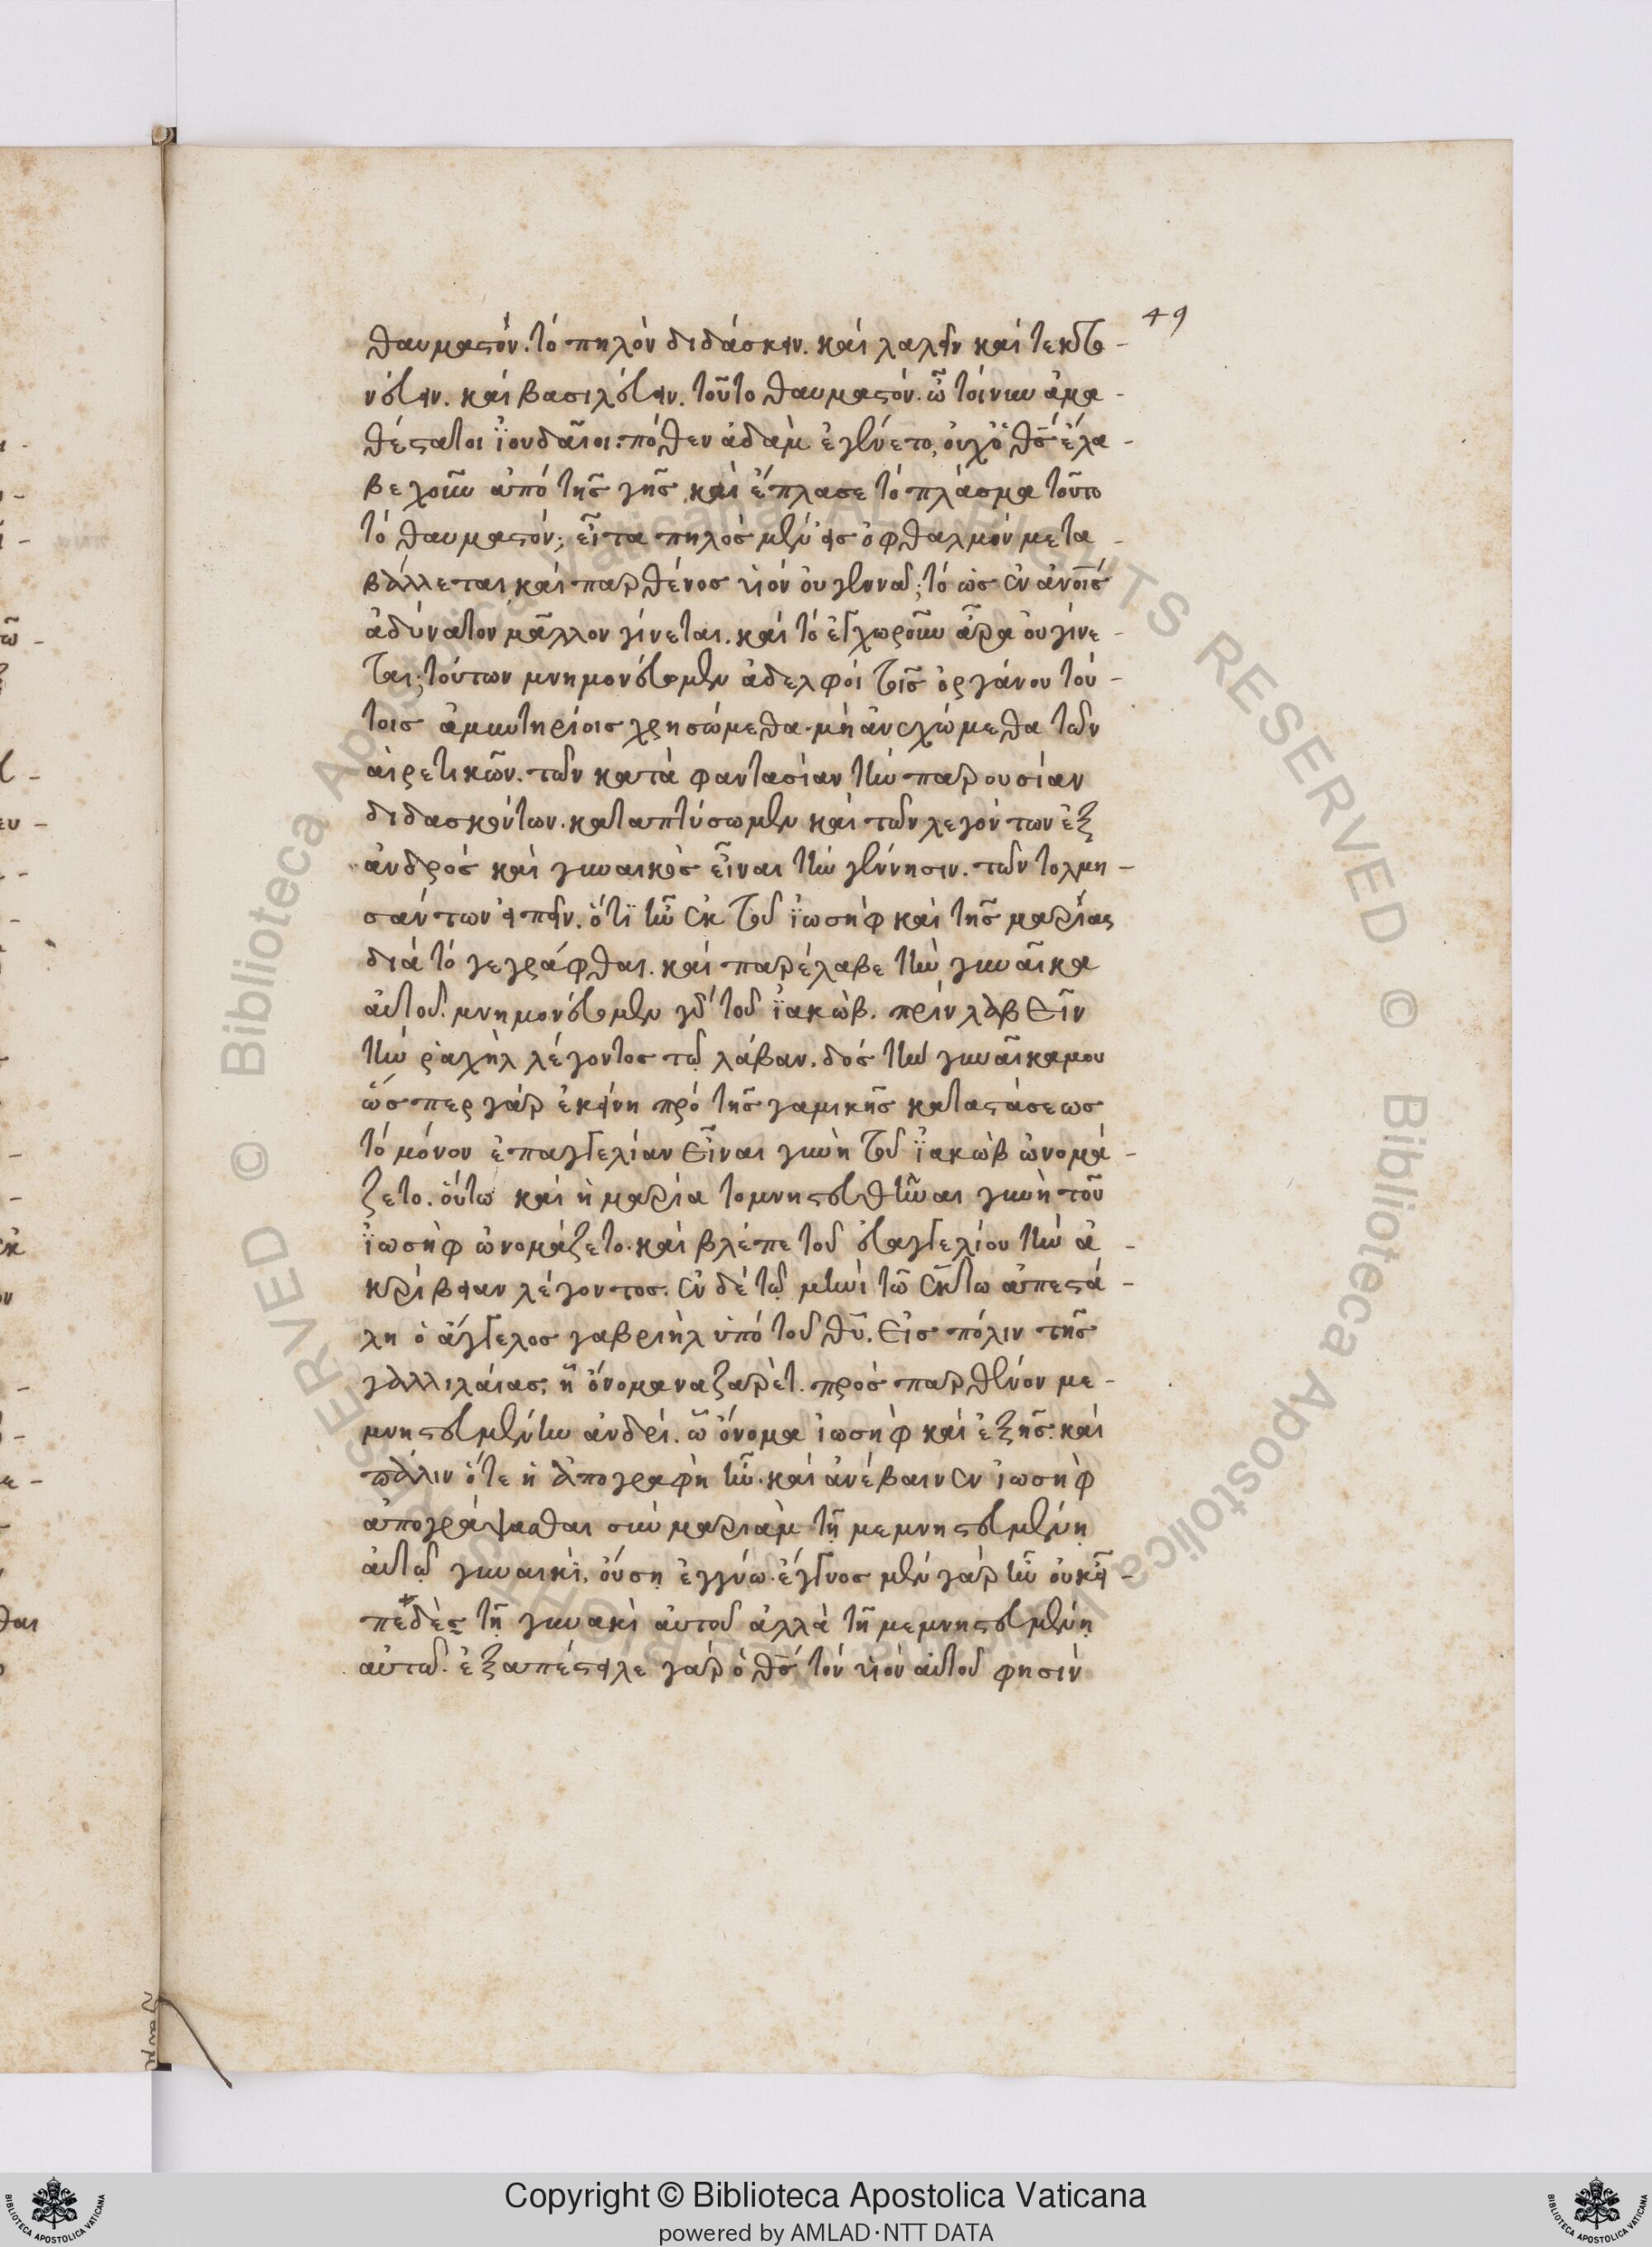 49
θαυμαστόν. τὸ πηλὸν διδάσκειν. καὶ λαλεῖν καὶ τεκτο-
νεύειν. καὶ βασιλεύειν. τοῦτο θαυμαστόν. ὦ τοίνυν ἀμα-
θέστατοι ἰουδαῖοι. πόθεν ἀδὰμ ἐγένετο, οὐχὶ ὁ θς ἔλα-
βε χοῦν ἀπὸ τῆς γῆς καὶ ἔπλασε τὸ πλάσμα τοῦτο
τὸ θαυμαστόν; εἶτα πηλὸς μὲν εἰς ὀφθαλμὸν μετα-
βάλλεται καὶ παρθένος υἱὸν οὐ γεννᾶ; τὸ ὡς ἐν ἀνοις
ἀδύνατον μᾶλλον γίνεται. καὶ τὸ ἐγχωροῦν ἆρα οὐ γίνε-
ται; τούτων μνημονεύομεν ἀδελφοὶ τοῖς ὀργάνου τού-
τοις ἀμυντηρίοις χρησώμεθα. μὴ ἀνεχώμεθα τῶν
αἱρετικῶν. τῶν κατὰ φαντασίαν τὴν παρουσίαν
διδασκόντων. καταπτύσωμεν καὶ τῶν λεγόντων ἐξ
ἀνδρὸς καὶ γυναικὸς εἶναι τὴν γέννησιν. τῶν τολμη-
σάντων εἰπεῖν. ὅτι ἦν ἐκ τοῦ ἰωσὴφ καὶ τῆς μαρίας
διὰ τὸ γεγράφθαι. καὶ παρέλαβε τὴν γυναῖκα
αὐτοῦ. μνημονεύομεν γὰρ τοῦ ἰακὼβ. πρὶν λαβεῖν
τὴν ῥαχὴλ λέγοντος τῷ λάβαν. δός τὴν γυναῖκα μου
ὥσπερ γὰρ ἐκείνη πρὸ τῆς γαμικῆς καταστάσεως
τὸ μόνον ἐπαγγελίαν εἶναι γυνὴ τοῦ ἰακὼβ ὠνομά-
ζετο. οὕτω καὶ ἡ μαρία το μνηστευθῆναι γυνὴ τοῦ
ἰωσὴφ ὠνομάζετο. καὶ βλέπε τοῦ εὐαγγελίου τὴν ἀ-
κρίβειαν λέγοντος. ἐν δὲ τῷ μηνὶ τῶ ἕκτω ἀπεστά-
λη ὁ ἄγγελος γαβριὴλ ὑπὸ τοῦ θυ. εἰς πόλιν τῆς
γαλλιλαίας, ἧ ὄνομα ναζαρὲτ. πρὸς παρθένον με-
μνηστευμένην ἀνδρὶ. ὧ ὄνομα ἰωσὴφ καὶ ἐξῆς. καὶ
πάλιν ὅτε ἡ ἀπογραφὴ ἦν. καὶ ἀνέβαινεν ἰωσὴφ
ἀπογράψασθαι σὺν μαριὰμ τῇ μεμνηστευμένῃ
αὐτῷ γυναικὶ, οὔσῃ ἐγγύω. ἔγγυος μὲν γὰρ ἦν οὐκ εἶ-
πε δὲ τῇ γυνακὶ αὐτοῦ ἀλλὰ τῇ μεμνηστευμένῃ
αὐτῶ. ἐξαπέστειλε γὰρ ὁ θς τὸν υἱὸν αὐτοῦ φησὶν
Copyright © Biblioteca Apostolica Vaticana
powered by AMLAD·NTT DATA